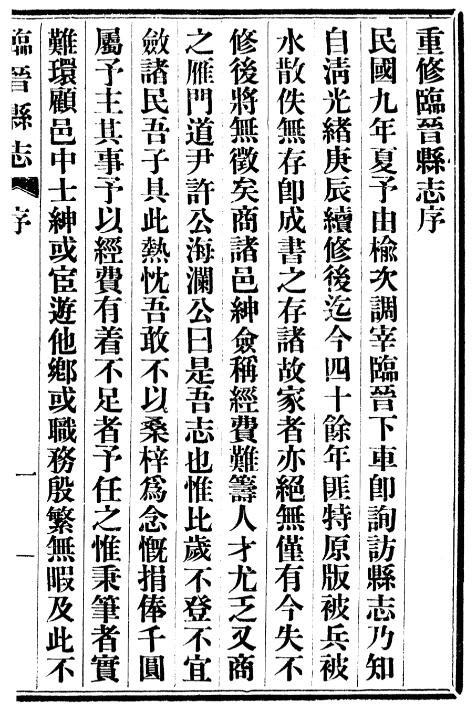 重修臨晉縣志序
民國九年夏予由榆次調宰臨晉下車卽詢訪縣志乃知
自淸光緒庚辰續修後迄今四十餘年匪特原版被兵被
水散佚無存卽成書之存諸故家者亦絕無僅有今失不
修後將無徵矣商諸邑紳僉稱經費難籌人才尤乏又商
之雁門道尹許公海瀾公曰是吾志也惟比歲不登不宜
斂諸民吾子具此熱忱吾敢不以桑梓爲念慨捐俸千圓
屬予主其事予以經費有着不足者予任之惟秉筆者實
難環顧邑中士紳或宦遊他鄕或職務殷繁無暇及此不
臨晉縣志 序 一 一